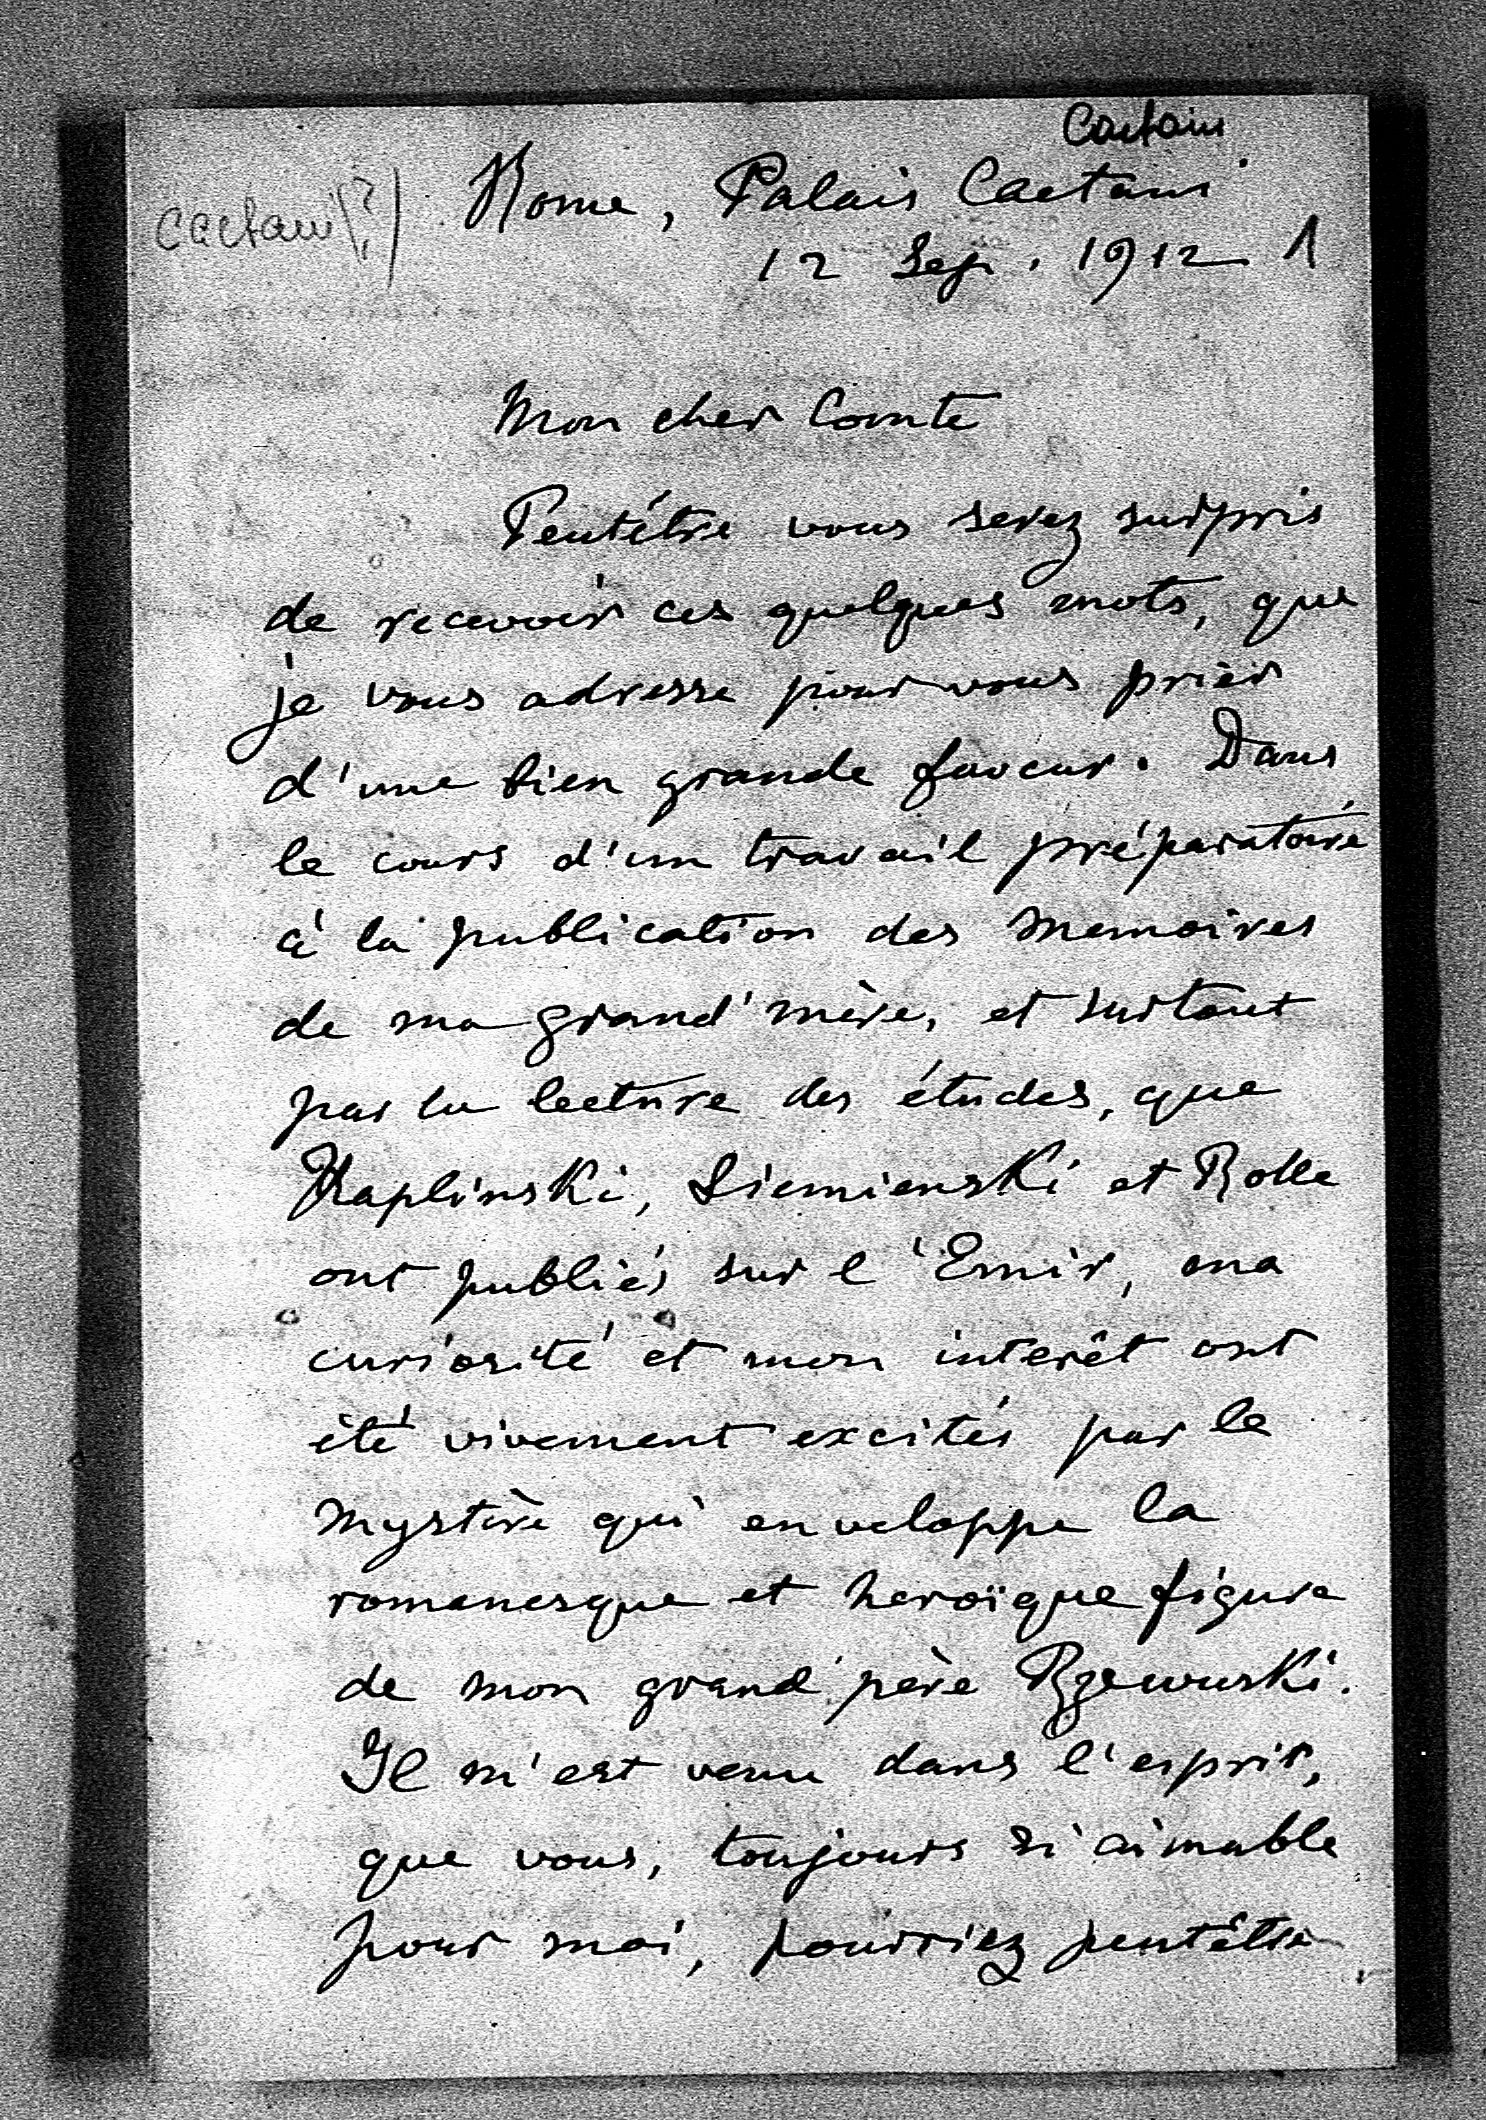 Caetani
Caetani(?) Rome, Palais Caetani
12 Sep. 1912 1
Mon cher Comte
Peutétre vous serez surpris
de recevoir ces quelques mots, que
je vous adresse pour vous prier
d'une bien grande faveur. Dans
le cours d'un travail préparatoire
à la publication des memoires
de ma grand'mère, et surtout
par la lecture des études, que
Kaplinski, Siemienski et Rolle
ont publiés sur l'Emir, ma
curiosité et mon interêt ont
été vivement excités par le
mystère qui enveloppe la
romanesque et heroïque figure
de mon grand'père Rzewuski.
Il m'est venu dans l'esprit,
que vous, toujours si aimable
pour moi, pourriez peutêtre